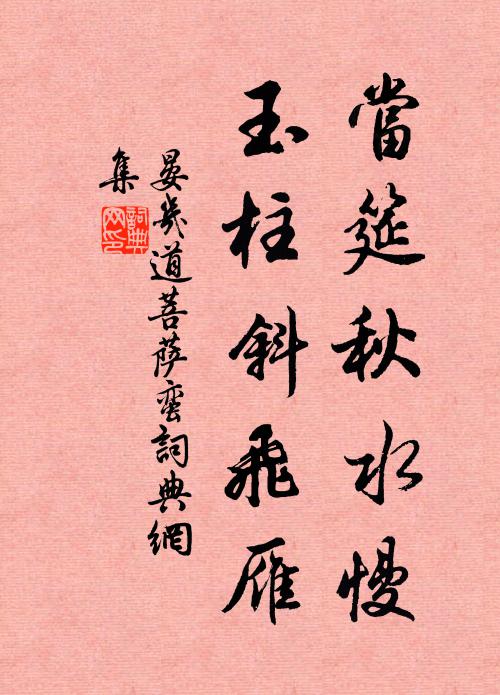 當筵秋水慢
玉柱斜飛雁
晏幾道菩薩蠻詞典網
集
詞典
网印